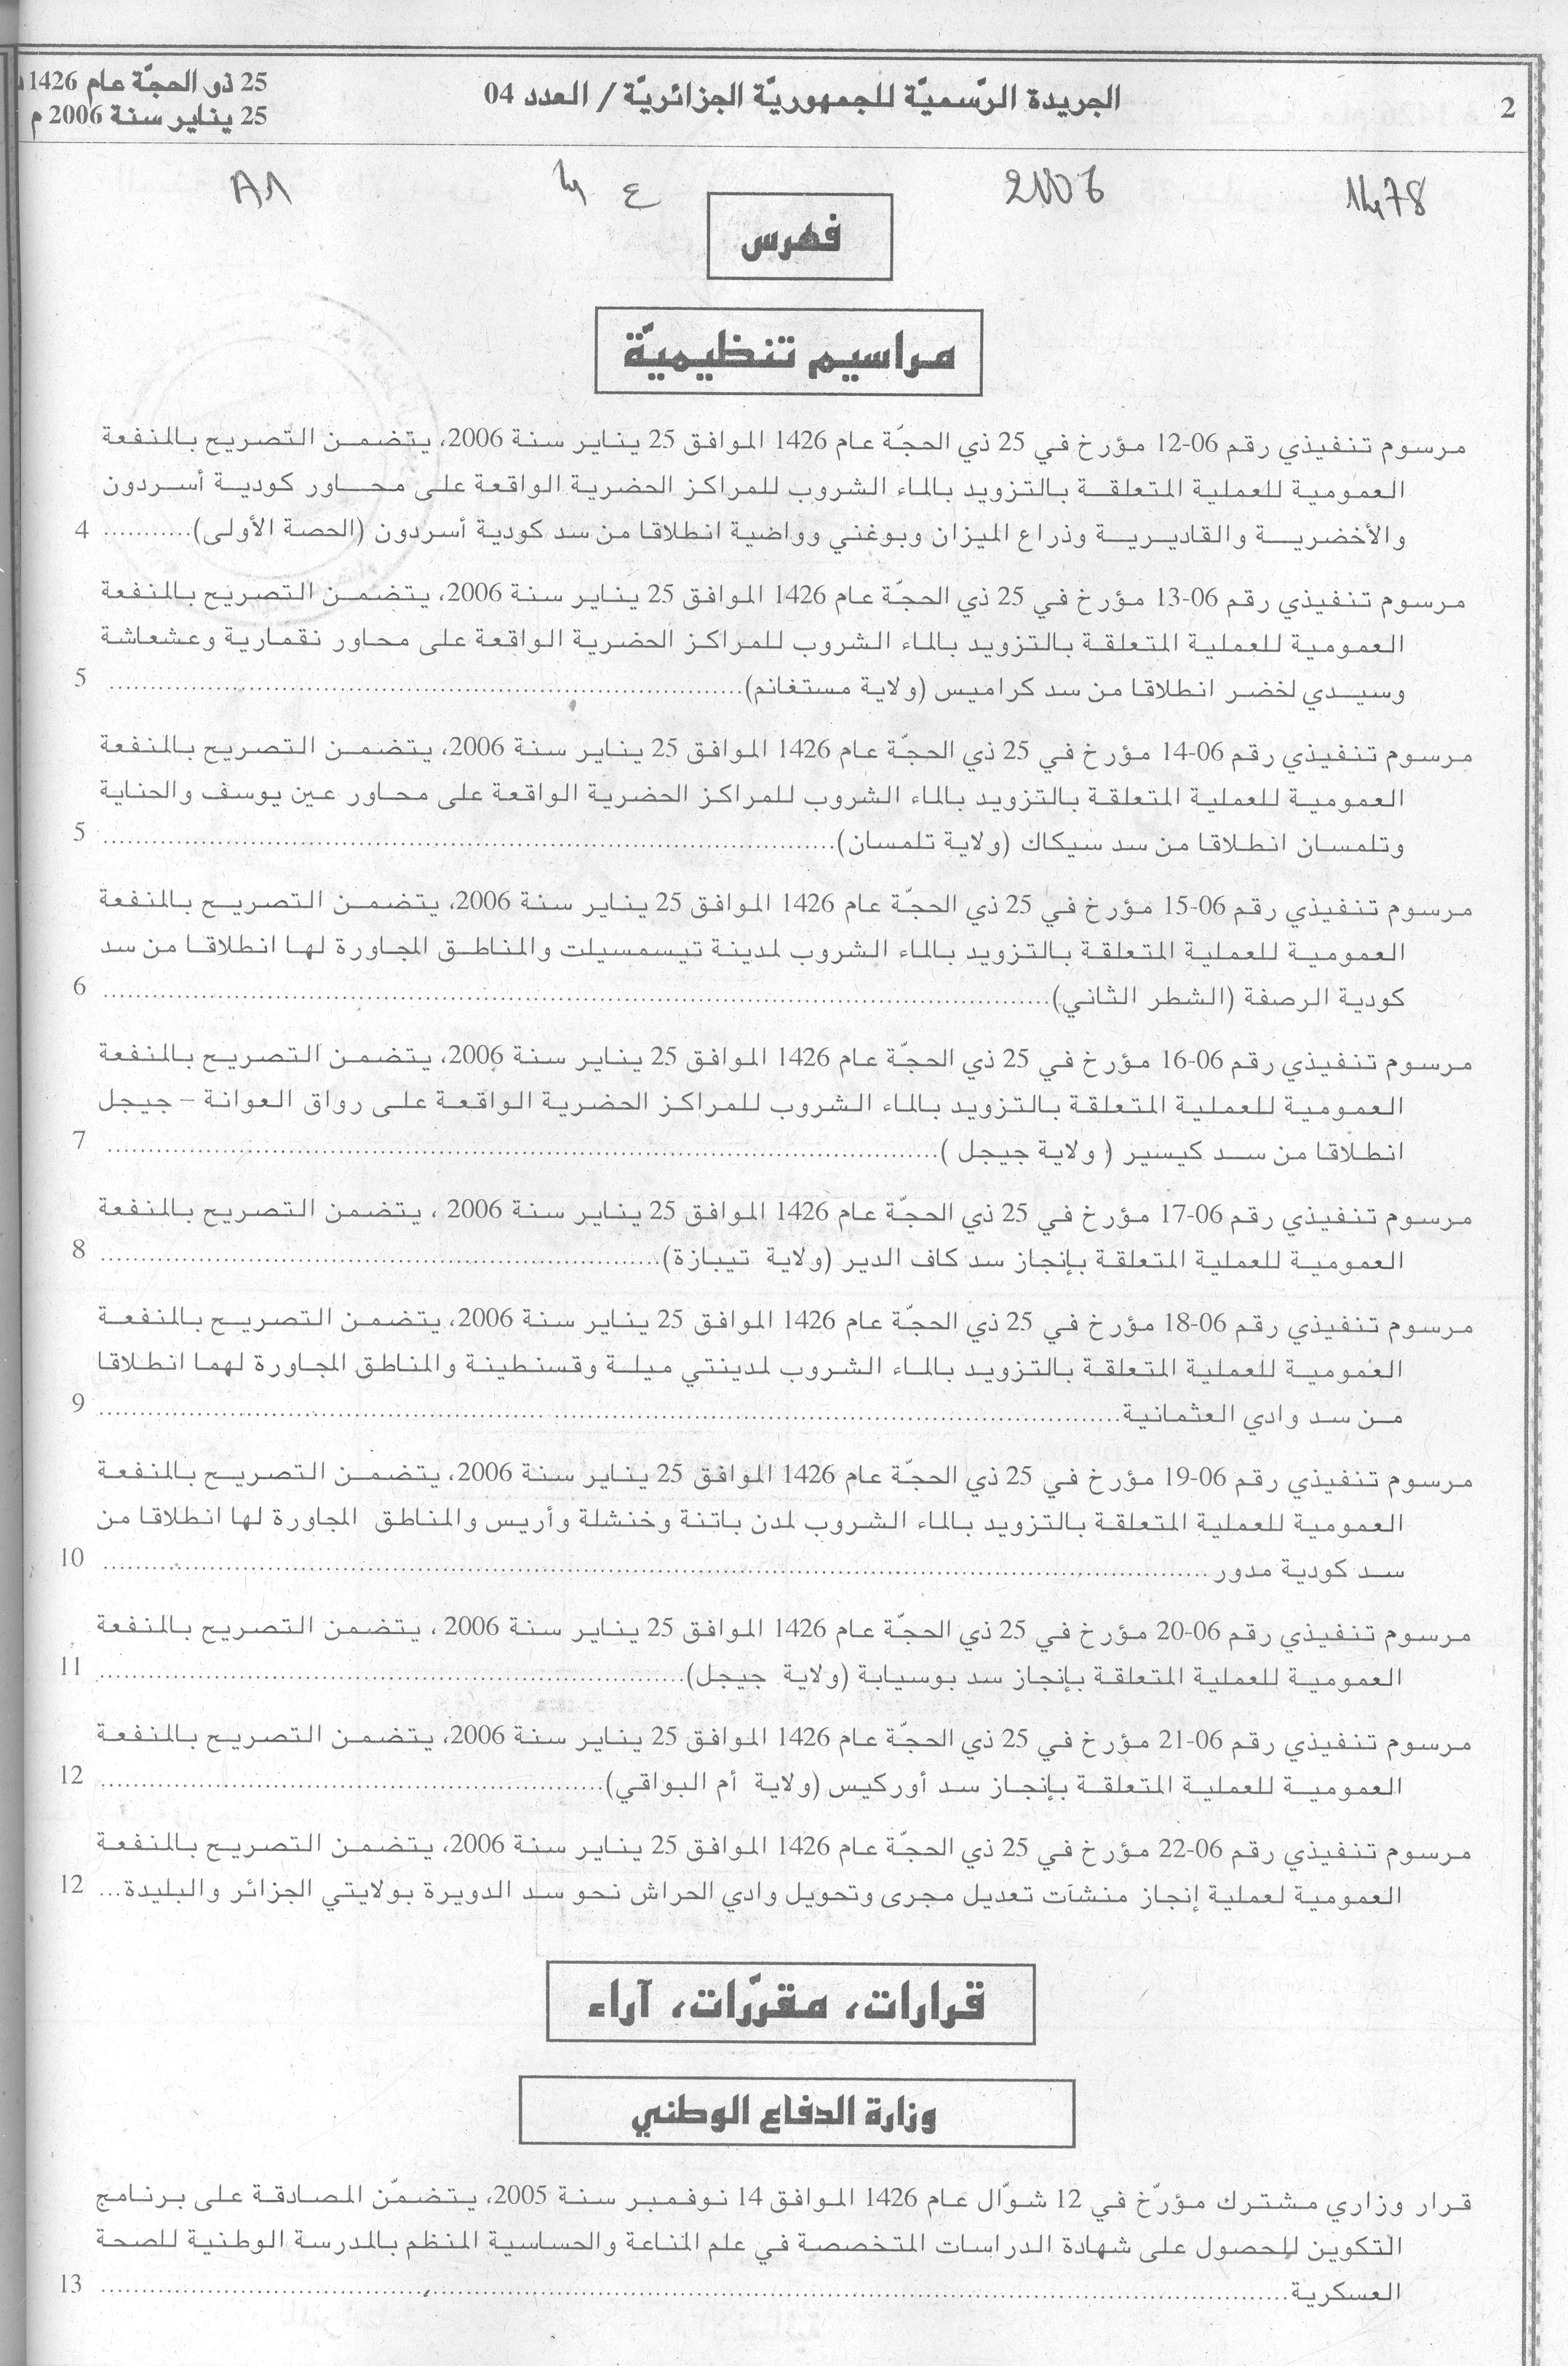 2
الجريدة الرّسميّة للجمهوريّة الجزائريّة / العدد 04
25 ذو الحجّة عام 1426
25 يناير سنة 2006 م
1478
2006
ع 4
A1
فهرس
مراسيم تنظيميّة
مرسوم تنفيذي رقم 06-12 مؤرخ في 25 ذي الحجّة عام 1426 الموافق 25 يناير سنة 2006، يتضمن التصريح بالمنفعة
العمومية للعملية المتعلقة بالتزويد بالماء الشروب للمراكز الحضرية الواقعة على محاور كودية أسردون
والأخضرية والقاديرية وذراع الميزان وبوغني وواضية انطلاقا من سد كودية أسردون (الحصة الأولى)........... 4
مرسوم تنفيذي رقم 06-13 مؤرخ في 25 ذي الحجّة عام 1426 الموافق 25 يناير سنة 2006، يتضمن التصريح بالمنفعة
العمومية للعملية المتعلقة بالتزويد بالماء الشروب للمراكز الحضرية الواقعة على محاور نقمارية وعشعاشة
وسيدي لخضر انطلاقا من سد كراميس (ولاية مستغانم)........... 5
مرسوم تنفيذي رقم 06-14 مؤرخ في 25 ذي الحجّة عام 1426 الموافق 25 يناير سنة 2006، يتضمن التصريح بالمنفعة
العمومية للعملية المتعلقة بالتزويد بالماء الشروب للمراكز الحضرية الواقعة على محاور عين يوسف والحناية
وتلمسان انطلاقا من سد سيكاك (ولاية تلمسان)........... 5
مرسوم تنفيذي رقم 06-15 مؤرخ في 25 ذي الحجّة عام 1426 الموافق 25 يناير سنة 2006، يتضمن التصريح بالمنفعة
العمومية للعملية المتعلقة بالتزويد بالماء الشروب لمدينة تيسمسيلت والمناطق المجاورة لها انطلاقا من سد
كودية الرصفة (الشطر الثاني)........... 6
مرسوم تنفيذي رقم 06-16 مؤرخ في 25 ذي الحجّة عام 1426 الموافق 25 يناير سنة 2006، يتضمن التصريح بالمنفعة
العمومية للعملية المتعلقة بالتزويد بالماء الشروب للمراكز الحضرية الواقعة على رواق العوانة – جيجل
انطلاقا من سد كيسير ( ولاية جيجل )........... 7
مرسوم تنفيذي رقم 06-17 مؤرخ في 25 ذي الحجّة عام 1426 الموافق 25 يناير سنة 2006 ، يتضمن التصريح بالمنفعة
العمومية للعملية المتعلقة بإنجاز سد كاف الدير (ولاية تيبازة)........... 8
مرسوم تنفيذي رقم 06-18 مؤرخ في 25 ذي الحجّة عام 1426 الموافق 25 يناير سنة 2006، يتضمن التصريح بالمنفعة
العمومية للعملية المتعلقة بالتزويد بالماء الشروب لمدينتي ميلة وقسنطينة والمناطق المجاورة لهما انطلاقا
من سد وادي العثمانية........... 9
مرسوم تنفيذي رقم 06-19 مؤرخ في 25 ذي الحجّة عام 1426 الموافق 25 يناير سنة 2006، يتضمن التصريح بالمنفعة
العمومية للعملية المتعلقة بالتزويد بالماء الشروب لمدن باتنة وخنشلة وأريس والمناطق المجاورة لها انطلاقا من
سد كودية مدور........... 10
مرسوم تنفيذي رقم 06-20 مؤرخ في 25 ذي الحجّة عام 1426 الموافق 25 يناير سنة 2006 ، يتضمن التصريح بالمنفعة
العمومية للعملية المتعلقة بإنجاز سد بوسيابة (ولاية جيجل)........... 11
مرسوم تنفيذي رقم 06-21 مؤرخ في 25 ذي الحجّة عام 1426 الموافق 25 يناير سنة 2006، يتضمن التصريح بالمنفعة
العمومية للعملية المتعلقة بإنجاز سد أوركيس (ولاية أم البواقي)........... 12
مرسوم تنفيذي رقم 06-22 مؤرخ في 25 ذي الحجّة عام 1426 الموافق 25 يناير سنة 2006، يتضمن التصريح بالمنفعة
العمومية لعملية إنجاز منشآت تعديل مجرى وتحويل وادي الحراش نحو سد الدويرة بولايتي الجزائر والبليدة... 12
قرارات، مقرّرات، آراء
وزارة الدفاع الوطني
قرار وزاري مشترك مؤرّخ في 12 شوّال عام 1426 الموافق 14 نوفمبر سنة 2005، يتضمّن المصادقة على برنامج
التكوين للحصول على شهادة الدراسات المتخصصة في علم المناعة والحساسية المنظم بالمدرسة الوطنية للصحة
العسكرية........... 13